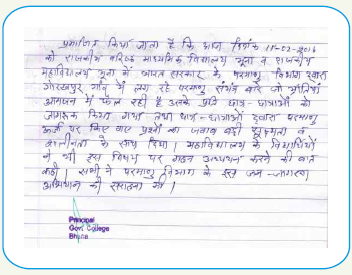 प्रमाणित किया जाता है कि आज दिनांक 18-02-2016
को राजकीय वरिष्ठ माध्यमिक विद्यालय भूना व राजकीय
महाविद्यालय भूना में भारत सरकार के परमाणु विभाग द्वारा
गोरखपुर गाँव में लग रहे परमाणु संयंत्र बारे जो भ्रांतियां
आमजन में फैल रही है उसके प्रति छात्र-छात्राओं को
जागरूक किया गया तथा छात्र-छात्राओं द्वारा परमाणु
ऊर्जा पर किए गए प्रश्नों का जवाब बड़ी व
शालीनता के साथ दिया। महाविद्यालय के विद्यार्थियों
ने भी इस विषय पर गहन अध्ययन करने की बात
कही। सभी ने परमाणु विभाग के इस जन-जागरण
अभियान की सराहना की।
Principal
Govt College
Bhuna